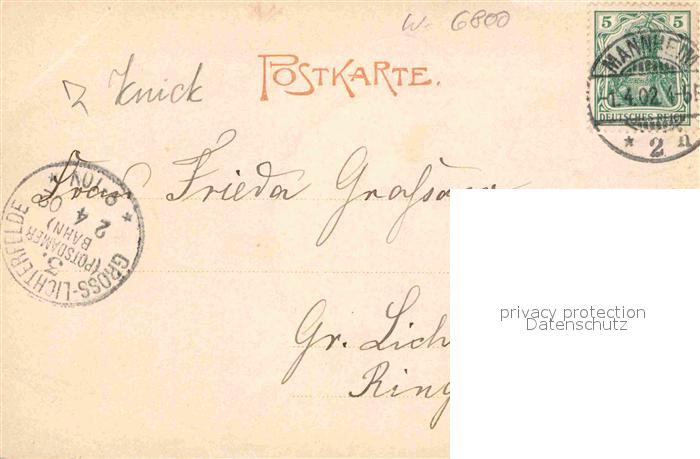 W. 6800
POSTKARTE.
Knick
5 5
DEUTSCHES REICH
MANNHEIM
1.4.02. 4-5
* 2 n
Frau Frieda
GROSS-LICHTERFELDE
(POTSDAMER
BAHN)
3.
2 4 02
Gr. Lich
Ring
privacy protection
Datenschutz